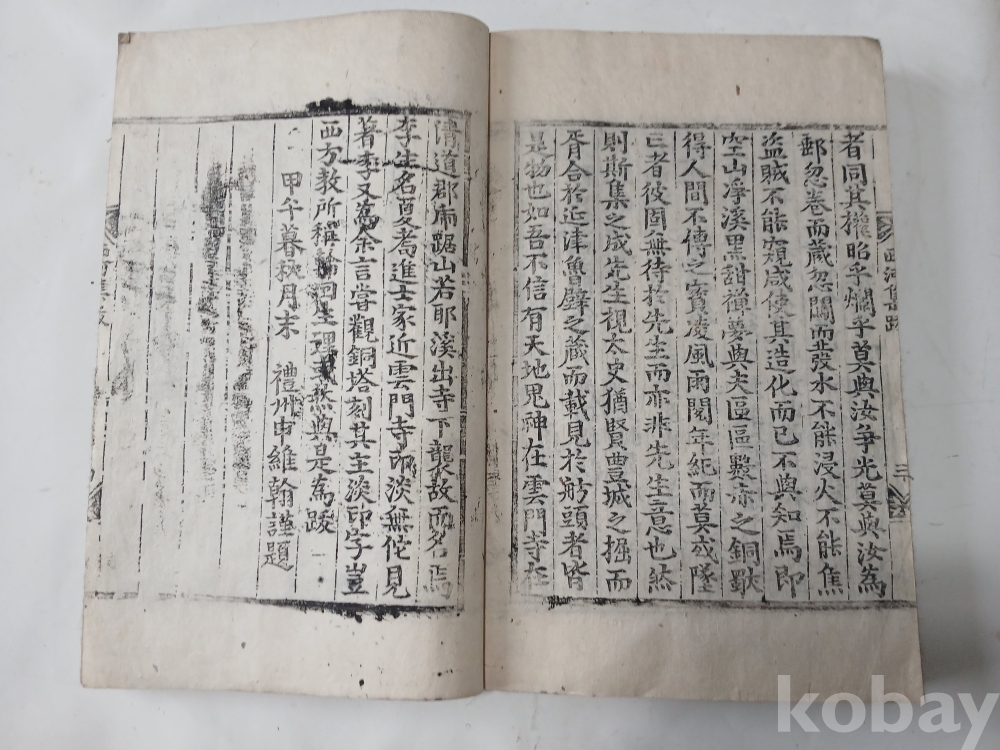 者同其權昭乎爛乎莫與汝爭光莫與汝為
郵忽卷而藏忽闢而發水不能浸火不能焦
盜賊不能窺咸使其造化而已不與知焉即
空山淨溪黑甜禪夢與夫區區爨淪之銅獸
得人間不傳之寶凌風雨閱年紀而莫或墜
已者彼固無待於先生而亦非先生意也然
則斯集之成先生視太史猶賢豊城之掘而
胥合於近津魯壁之蔵而載見於舫頭者皆
是物也如吾不信有天地鬼神在雲門寺在
清道郡虎踞山若耶溪出寺下襲故而名焉
李生名夏耉進士家近雲門寺印淡無佗見
著李又為余言嘗觀銅塔刻其主淡印字豈
西方教所稱輪回生理或然與是為跋
甲午暮秋月末 禮州申維翰謹題
西河集跋
三
kobay